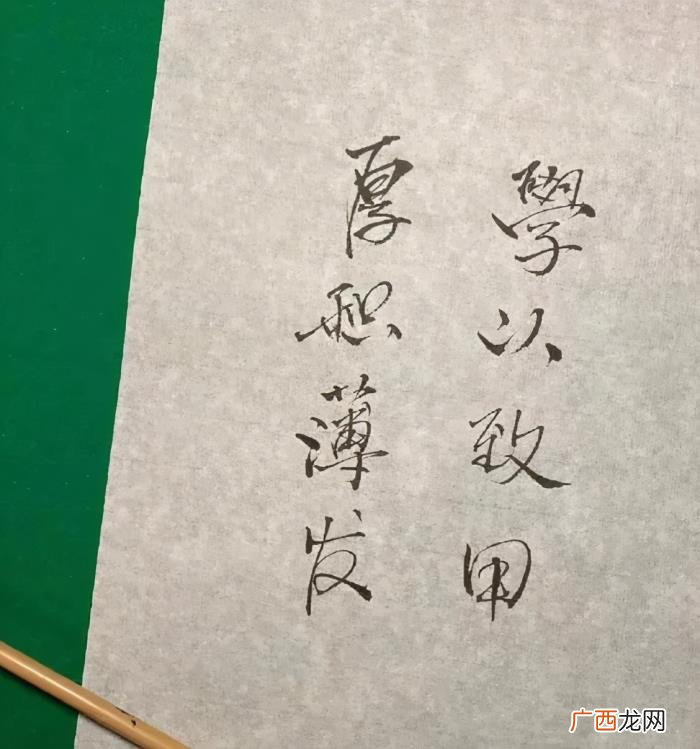 學以致用
厚积薄发
广西龙网